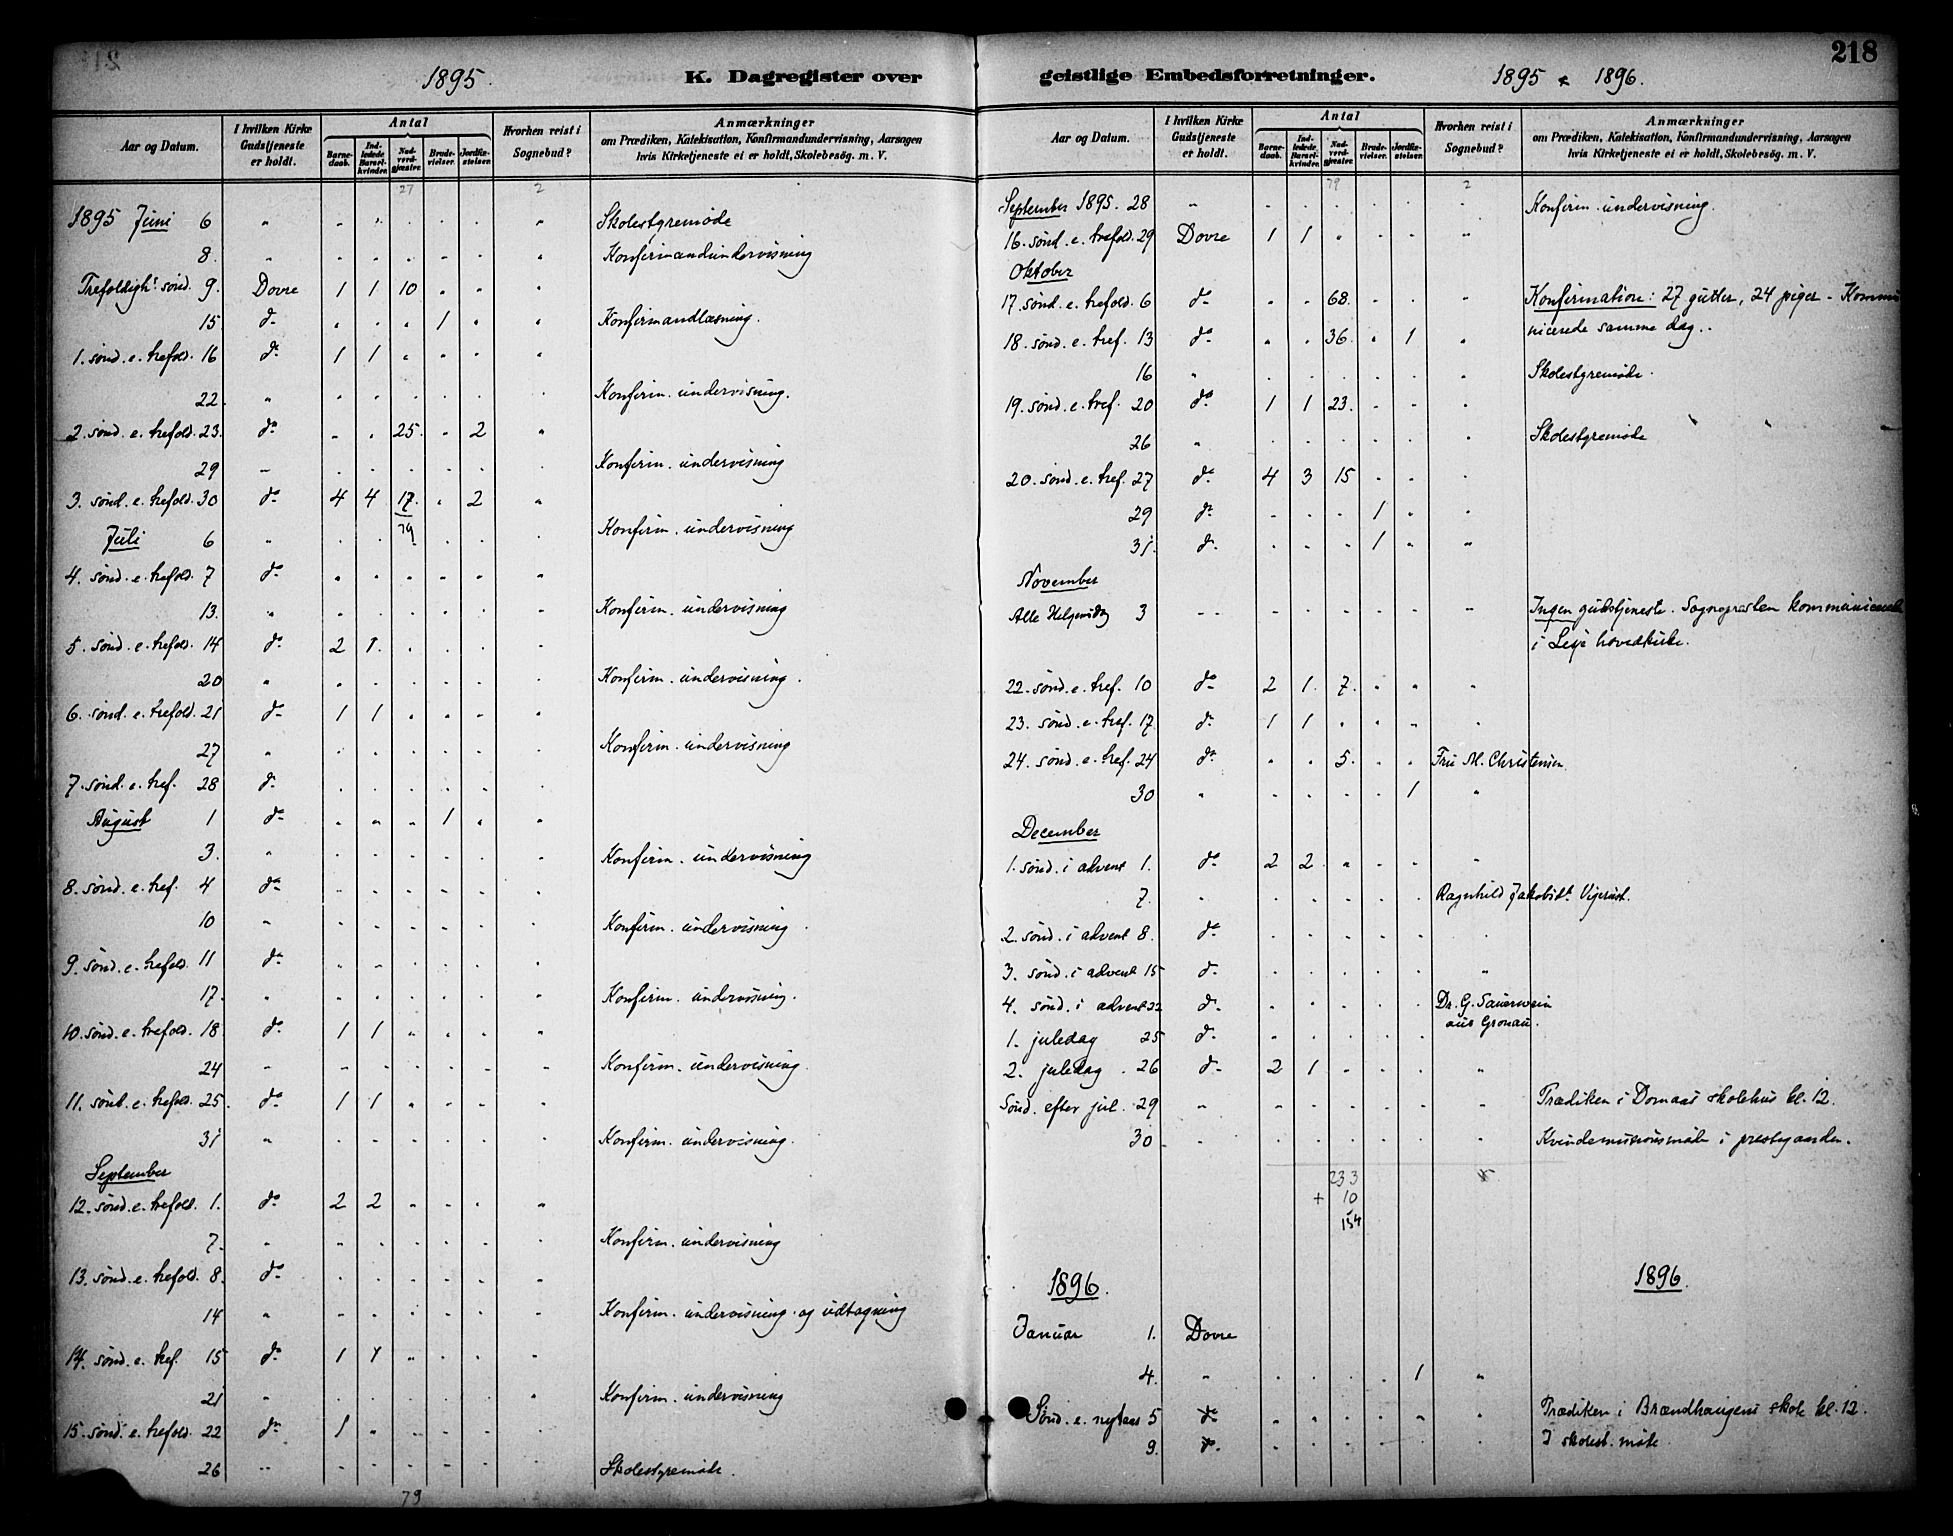 218
1895.
K. Dagregister over
geistlige Embedsforretninger.
1895 & 1896.
Aar og Datum.
I hvilken Kirke Gudstjeneste er holdt.
Antal
Barne-daab.
Ind-ledede Barsel-kvinder.
Nad-verd-gjæster.
Brude-vielser.
Jordfæ-stelser.
Hvorhen reist i Sognebud?
Anmærkninger
om Prædiken, Katekisation, Konfirmandundervisning, Aarsagen
hvis Kirketjeneste ei er holdt, Skolebesøg. m. V.
27 2
1895 Juni 6 " - " . . . " Skolestyremøde
8. " . . . . . " Konfirmandundervisning
Trefoldigh.s sønd. 9. Dovre 1 1 10 . . "
15 do . . . 1 . " Konfirmandlæsning.
1. sønd. e. trefold. 16 do 1 1 . . . "
22. " . . . . . . Konfirm. undervisning.
2. sønd. e. trefold. 23. do . . 25. . 2 "
29 - . . . . . . Konfirm. undervisning
3. sønd. e. trefold. 30 do 4 4 17. . 2 "
79
Juli 6 " . . . . . Konfirm. undervisning
4. sønd. e. trefold. 7 do " . . . . "
13. " . . . . . . Konfirm. undervisning
5. sønd. e. trefold. 14 do 2 1. . . . .
20 " . . . . . . Konfirm. undervisning.
6. sønd. e. trefold. 21 do 1 1 . . . "
27 " . . . . . . Konfirm. undervisning
7. sønd. e. tref. 28 do . . . . . .
August 1 do . . . 1 . "
3. " . . . . . . Konfirm. undervisning
8. sønd. e. tref. 4 do . . . . . "
10 " . . . . . . Konfirm. undervisning
9. sønd. e. trefold. 11 do . . . . . .
17. " . . . . . " Konfirm. undervisning.
10. sønd. e. trefold. 18 do 1 1 . . . "
24 - - - - - - - Konfirm. undervisning
11. sønd. e. trefold. 25. do 1 1 . . . "
31 " . . . . . . Konfirm. undervisning.
September
12. sønd. e. trefold. 1. do 2 2 . . . "
7. " . . . . . . Konfirm. undervisning
13. sønd. e. trefold. 8. do . . . . . "
14 " . . . . . . Konfirm. undervisning og udtagning
14. sønd. e. tref. 15 do 1 1 . . . "
21 " . . . . . " Konfirm. undervisning
15. sønd. e. trefold. 22 do 1 . . . . .
26 " . . . . . . Skolestyremøde.
79
Aar og Datum.
I hvilken Kirke Gudstjeneste er holdt.
Antal
Barne-daab.
Ind-ledede Barsel-kvinder.
Nad-verd-gjæster.
Brude-vielser.
Jordfæ-stelser.
Hvorhen reist i Sognebud?
Anmærkninger
om Prædiken, Katekisation, Konfirmandundervisning, Aarsagen
hvis Kirketjeneste ei er holdt, Skolebesøg. m. V.
79 2
September 1895. 28 " . . . . . " Konfirm. undervisning.
16. sønd. e. trefold. 29 Dovre 1 1 . . . "
Oktober
17. sønd. e. trefold. 6 do . . 68. . . " Konfirmation: 27 gutter, 24 piger - Kommu
nicerede samme dag..
18. sønd. e. tref. 13 do . . 36. . 1 "
16 " . . . . . . Skolestyremøde.
19. sønd. e. tref. 20 do 1 1 23. . . .
26 " . . . . . . Skolestyremøde
20. sønd. e. tref. 27 do 4 3 15 . . .
29 do . . . 1 . "
31. do . . . 1 . "
November
Alle Helgensdag 3 - - . . . . " Ingen gudstjeneste. Sognepresten kommunicerede
i Lesje hovedkirke.
22. sønd. e. tref. 10 do 2 1. 7. . . "
23. sønd. e. tref. 17. do 1 1 . . . .
24. sønd. e. tref. 24 do . . 5. . . Fru M. Christensen.
30 " . . . . 1 "
December
1. sønd. i advent 1. do 2 2 . . . "
7. " . . . . . Ragnhild Jakobsdt. Vigerust.
2. sønd. i advent 8. do . . . . . .
3. sønd. i advent 15 do . . . . . "
4. sønd. i advent 22 do . . . . . Dr. G. Sauerwein
aus Gronau.
1. juledag 25 do . . . . .
2. juledag 26 do 2 1 . . . "
Sønd. efter jul. 29 " . . . . . - Prædiken i Domaas skolehus kl. 12.
30 - . . . . . " Kvindemissionsmøde i prestegaarden.
233
+ 10
154
1896. 1896.
Januar 1. Dovre
4. " . . . . 1 "
Sønd. e. nytaar 5 do . . . . . . Prædiken i Brændhaugens skole kl. 12.
9. do . . . . . . I skolest. møde.